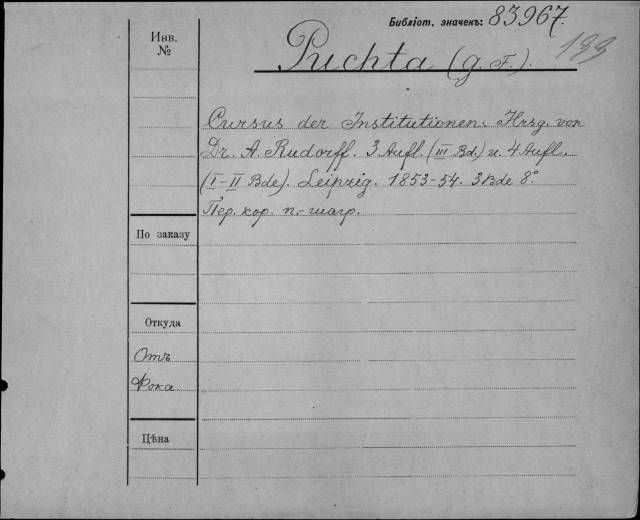 Библіот. значекъ: 83967.
199
Инв.
№
Puchta (G. F.).
Cursus der Institutionen. Hrsg. von
Dr. A. Rudorff. 3 Aufl. (III Bd.) u. 4 Aufl.
(I-II Bde). Leipzig. 1853-54. 3 Bde 8°.
Пер. кор. п.-шагр.
По заказу
Откуда
Отъ
Фока
Цѣна